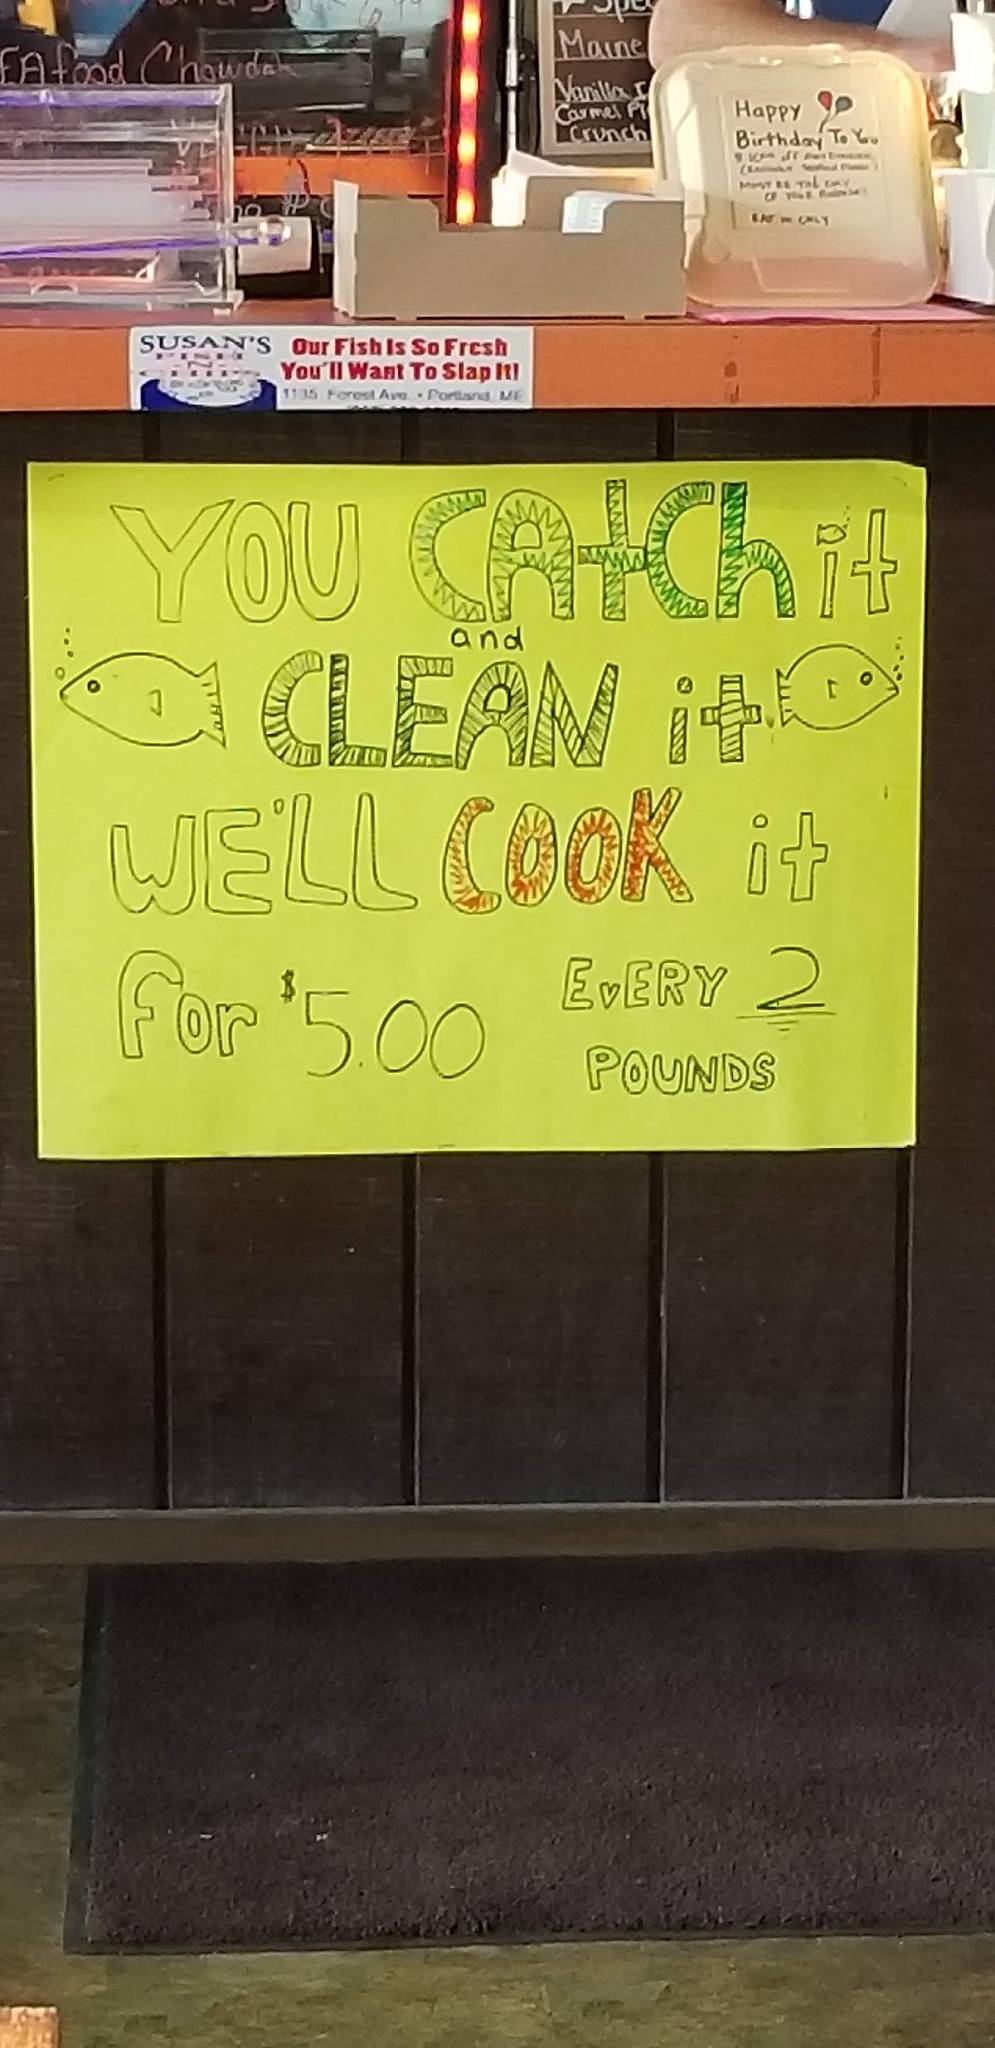 EAfood Chowdah
Spec
Maine
Vanilla
Carmel
Crunch
Happy
Birthday To You
MUST BE THE DAY
OF YOUR
EAT in ONLY
SUSAN'S
FISH
-N-
CHIPS
Our Fish Is So Fresh
You'll Want To Slap It!
1135 Forest Ave. • Portland, ME
YOU CAtCh it
and
CLEAN it
WE'LL COOK it
for $5.00
EvERY 2
POUNDS